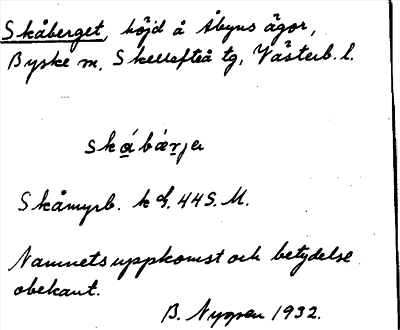 Skåberget, höjd å Åbyns ägor,
Byske sn, Skellefteå tg, Västerb. l.
skábærjə
Skåmyrb. k bl. 44 S.M.
Namnets uppkomst och betydelse
obekant.
B. Nygren 1932.